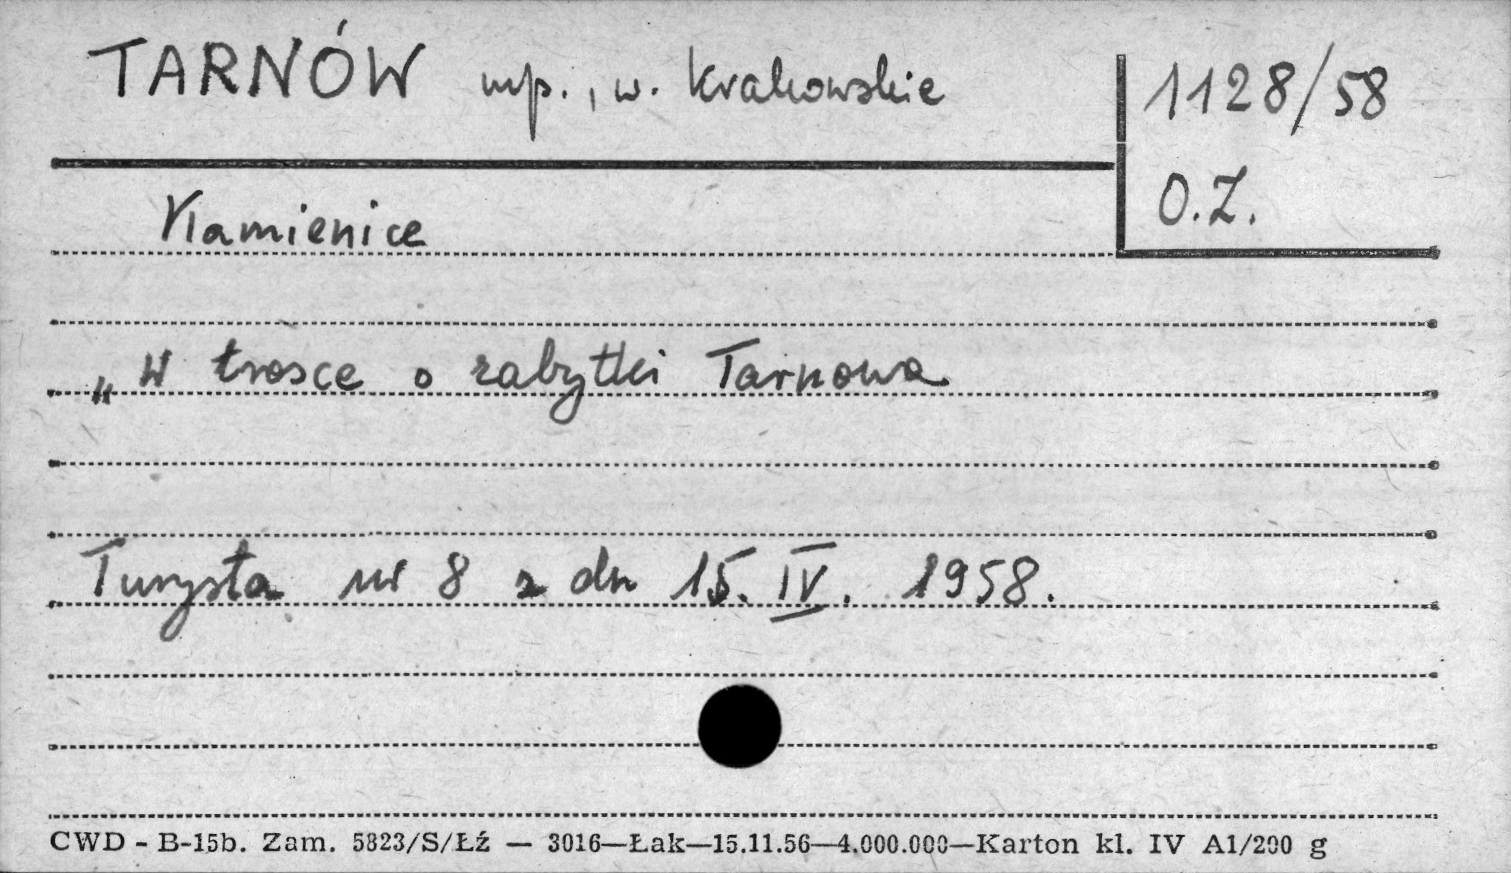 TARNÓW mp., w. krakowskie
1128/58
O.Z.
Kamienice
„W trosce o zabytki Tarnowa
Turysta nr 8 z dn 15. IV. 1958.
CWD - B-15b. Zam. 5823/S/Łź — 3016—Łak—15.11.56—4.000.000—Karton kl. IV A1/200 g